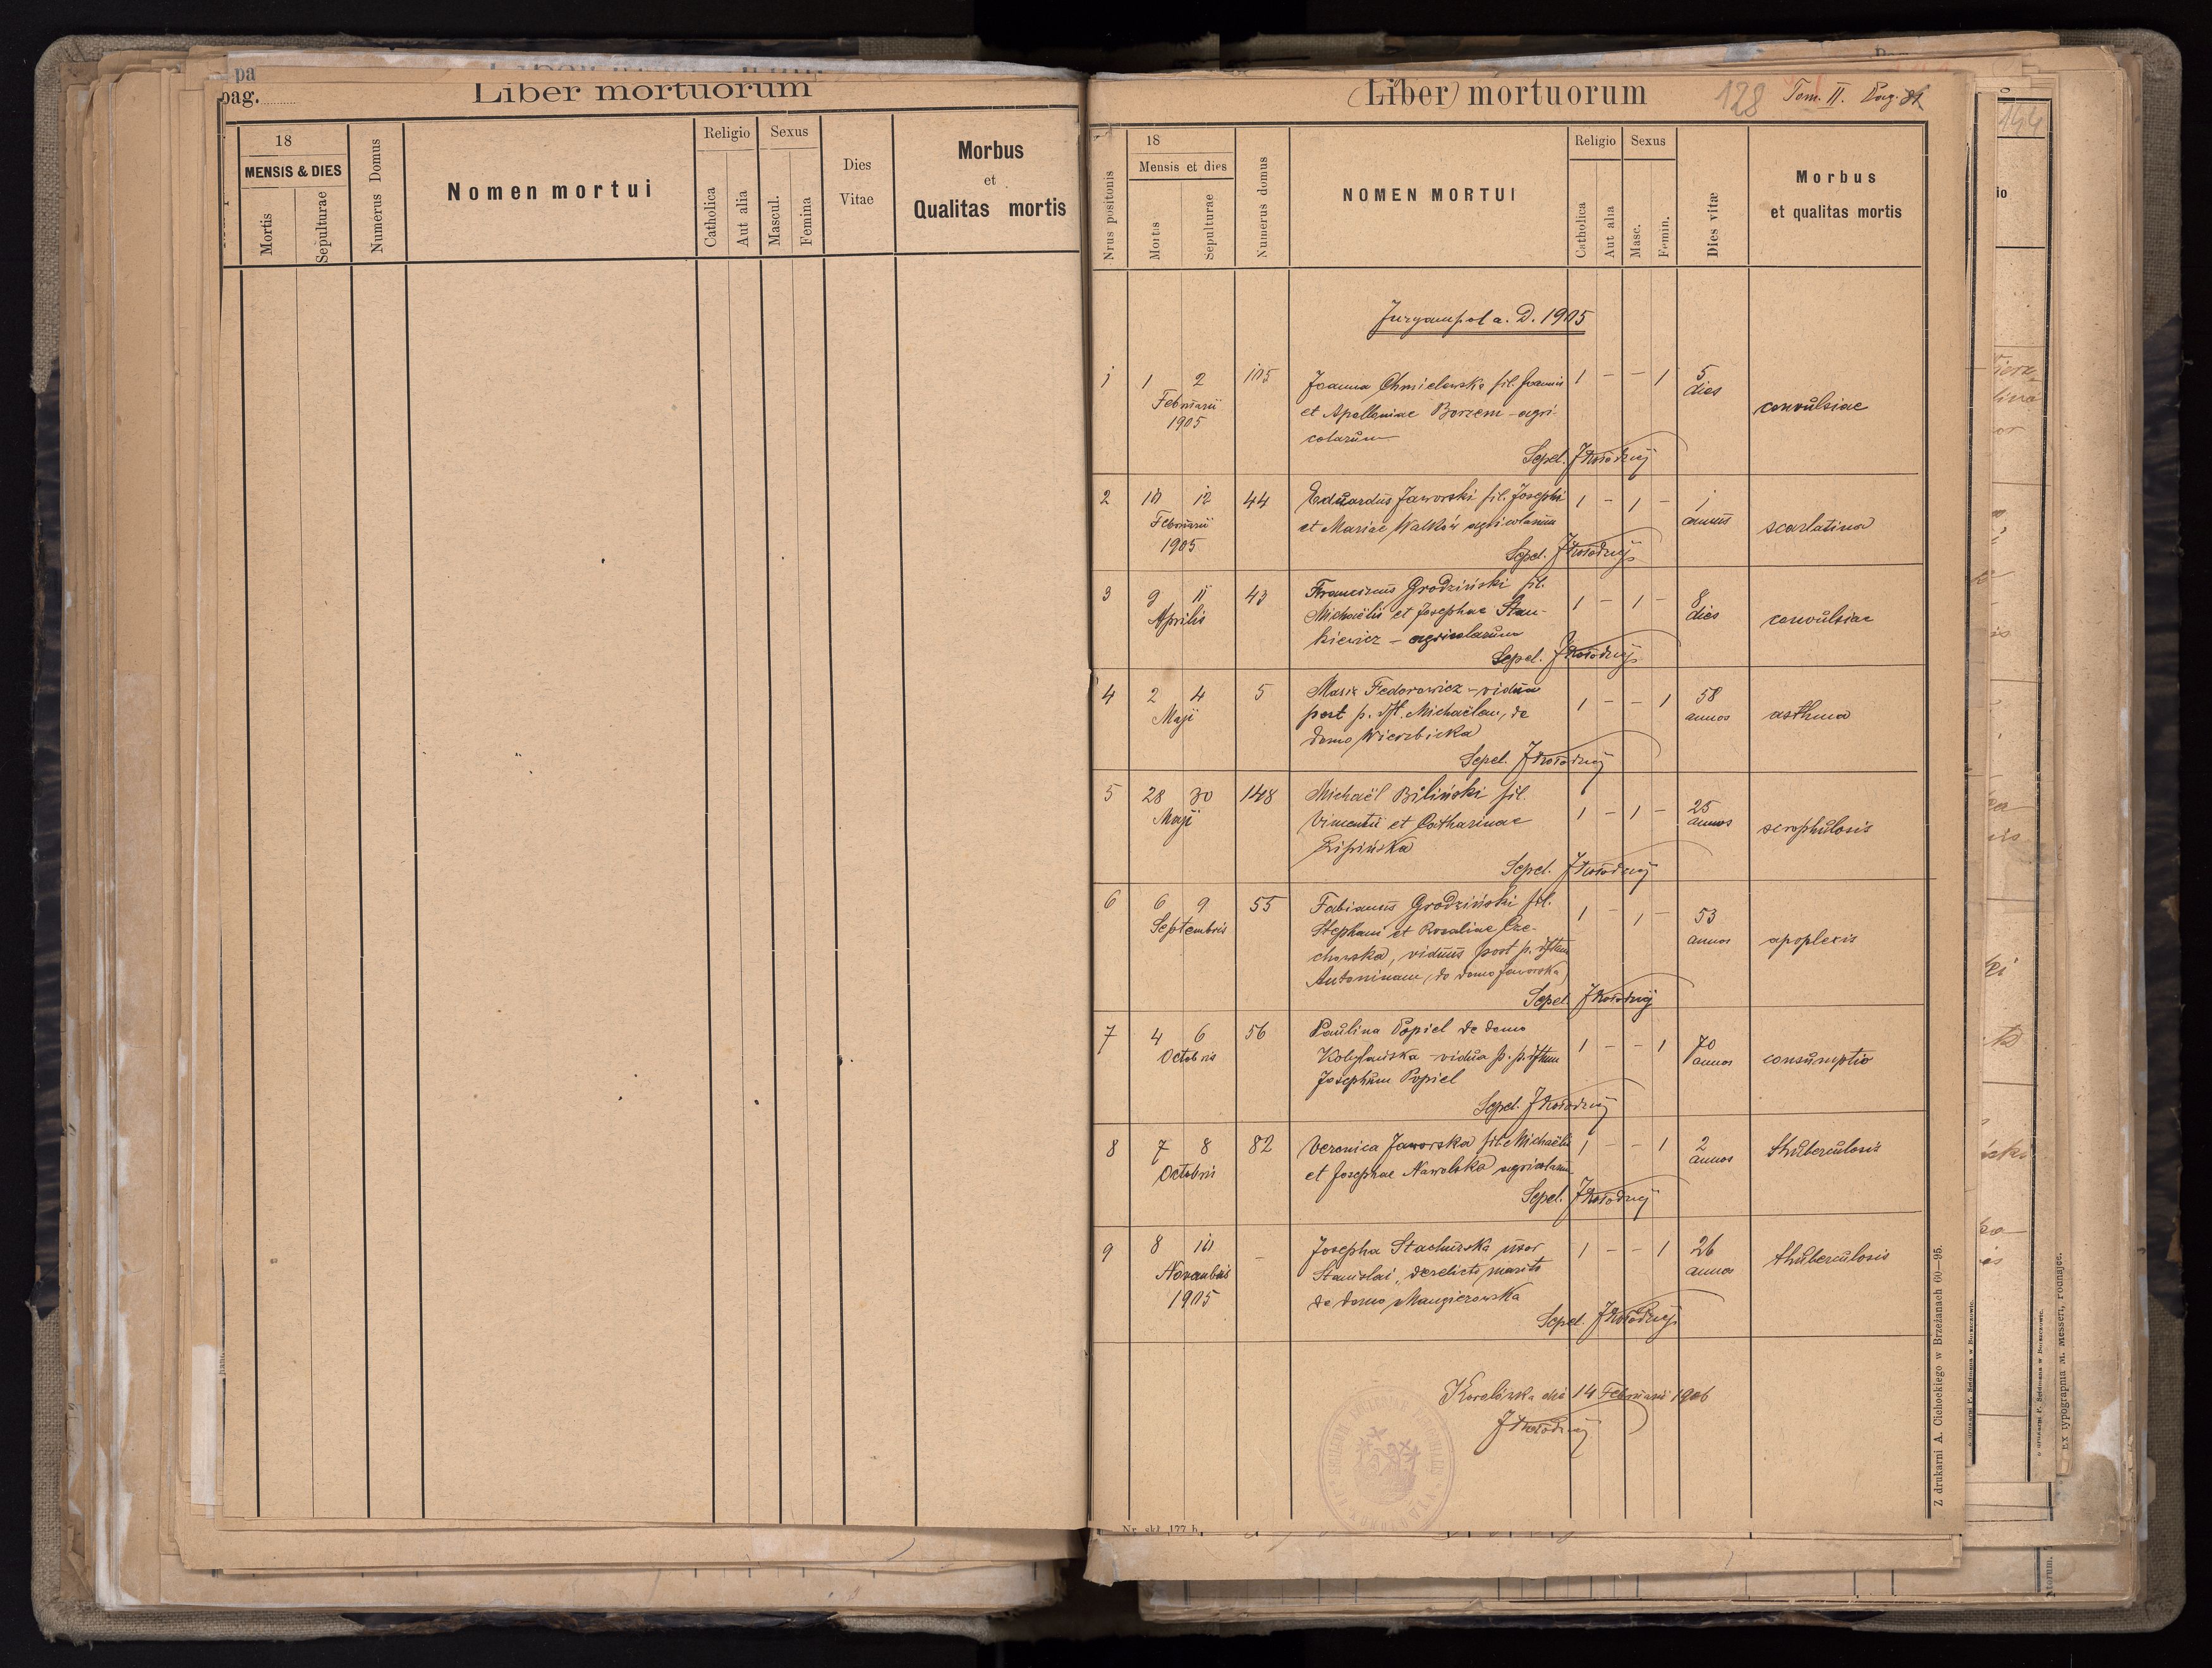 pag.
Liber mortuorum
18
MENSIS & DIES
Mortis
Sepulturae
Numerus Domus
Nomen mortui
Religio
Catholica
Aut alia
Sexus
Mascul.
Femina
Dies
Vitae
Morbus
et
Qualitas mortis
(Liber) mortuorum
128
Tom. II. Pag.
Nrus positonis
18
Mensis et dies
Mortis
Sepulturae
Numerus domus
NOMEN MORTUI
Religio
Catholica
Aut alia
Sexus
Masc.
Femin.
Dies vitæ
Morbus
et qualitas mortis
Jurgampol a. D. 1905
1 1 2 105 Joanna Chmielewska fil. Joannis 1 - - 1 5
Februarii et Apolloniae Borzem - agri- dies convulsiae
1905 colarum
Sepel. JKołodzij
2 10 12 44 Eduardus Jaworski fil. Josephi 1 - 1 - 1
Februarii et Mariae Walków agricolarum annus scarlatina
1905 Sepel. JKołodzij
3 9 11 43 Franciscus Grodziński fil. 1 - 1 - 8
Aprilis Michaëlis et Josephae Stan- dies convulsiae
kiewicz - agricolarum
Sepel. JKołodzij
4 2 4 5 Maria Fedorowicz - vidua 1 - - 1 58
Maji post p. dft. Michaëlem, de annos asthma
domo Wierzbicka
Sepel. JKołodzij
5 28 30 148 Michaël Biliński fil. 1 - 1 - 25
Maji Vincentii et Catharinae annos scrophulosis
Lipińska
Sepel. JKołodzij
6 6 9 55 Fabianus Grodziński fil. 1 - 1 - 53
Septembris Stephani et Rosaliae Cze- annos apoplexis
chowska, viduus post p. dftam
Antoninam, de domo Jaworska
Sepel. JKołodzij
7 4 6 56 Paulina Popiel de domo 1 - - 1 70
Octobris Kobylańska - vidua p. p. dftum annos consumptio
Josephum Popiel
Sepel. JKołodzij
8 7 8 82 Veronica Jaworska fil. Michaëlis 1 - - 1 2
Octobris et Josephae Nawolska agricolarum annos thuberculosis
Sepel. JKołodzij
9 8 10 - Josepha Stachurska uxor 1 - - 1 26
Novembris Stanislai, derelicta marito annos thuberculosis
1905 de domo Mangierowska
Sepel. JKołodzij
Korolówka die 14 Februarii 1906
JKołodzij
Z drukarni A. Cichockiego w Brzeżanach 60—95.